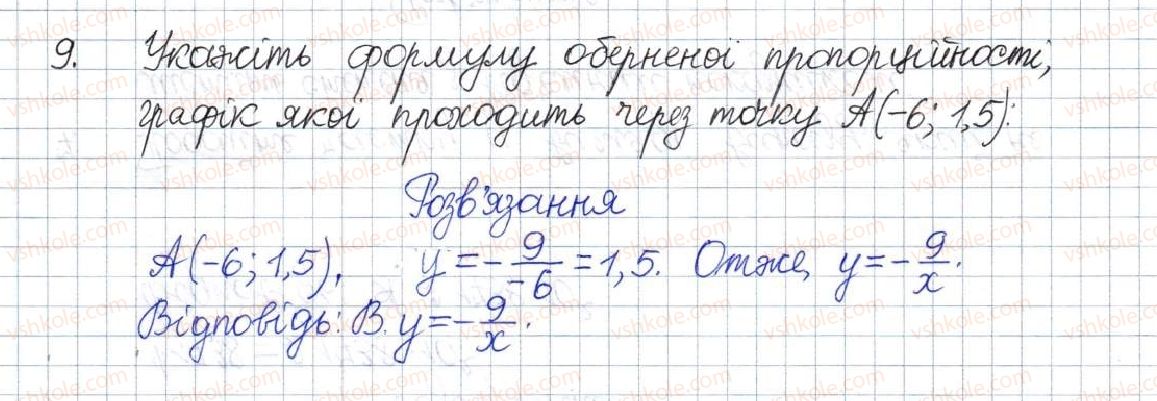 9. Укажіть формулу оберненої пропорційності,
графік якої проходить через точку A(-6; 1,5):
Розв'язання
A(-6; 1,5), y = -9/-6 = 1,5. Отже, y = -9/x.
Відповідь: В. y = -9/x.